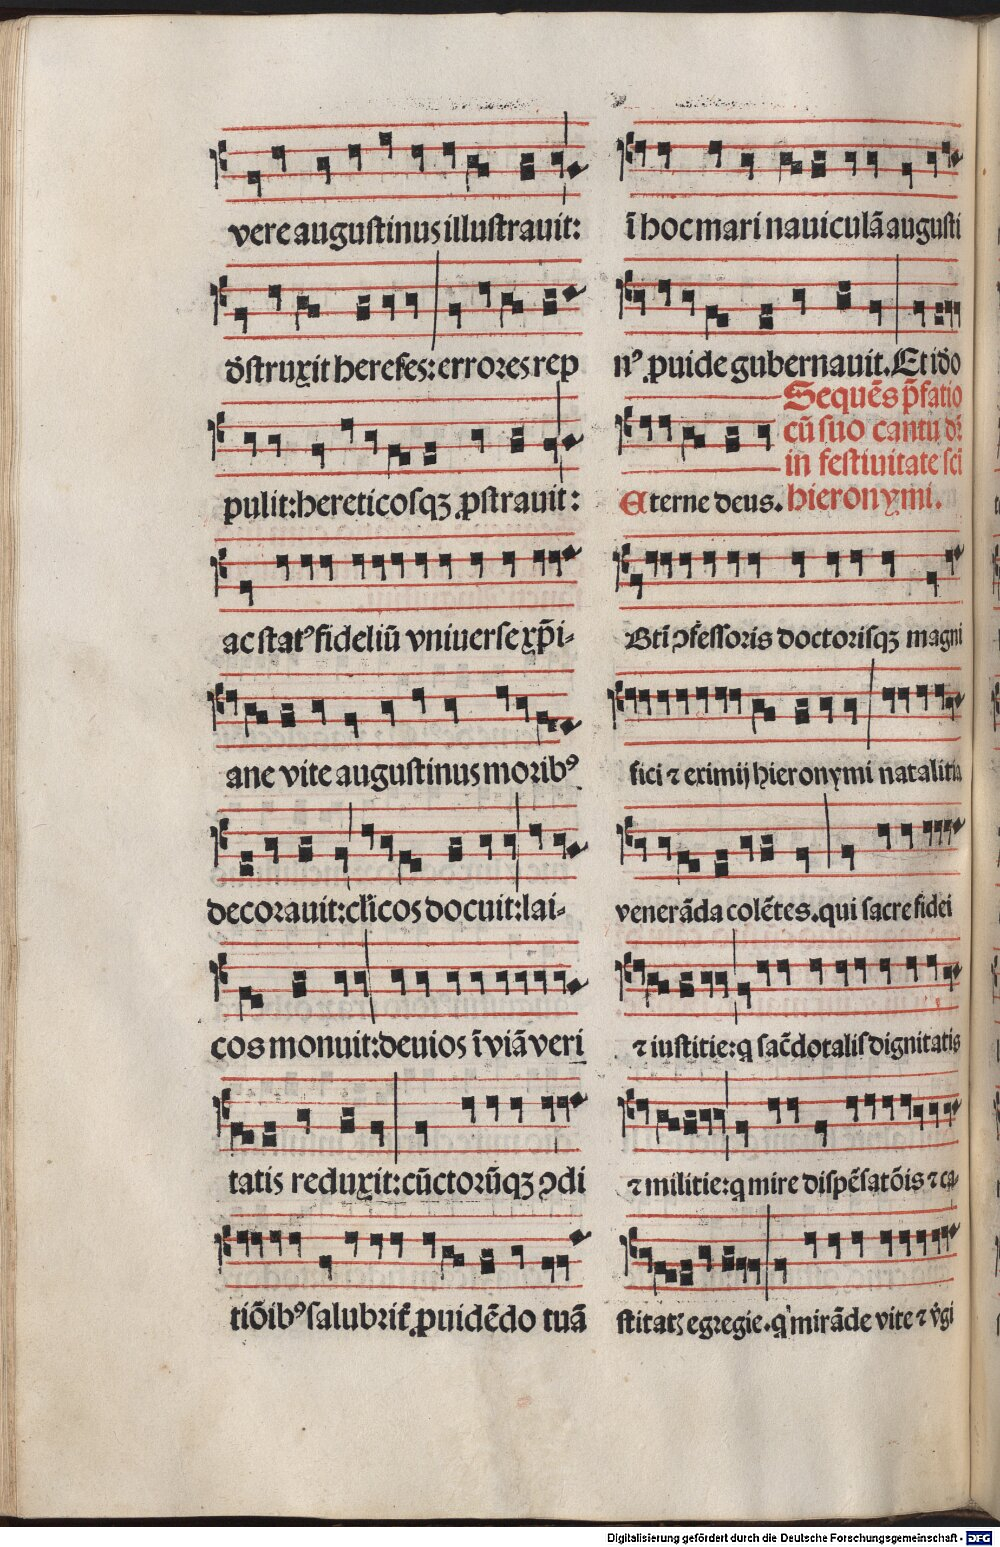 vere augustinus illustrauit:
dr̄struxit hereses: errores rep
pulit: hereticosqꝫ ꝓstrauit:
ac statꝰ fideliū vniuerse xp̄i-
ane vite augustinus moribꝰ
decorauit: cl̄icos docuit: lai-
cos monuit: deuios ī viā veri
tatis reduxit: cūctorūqꝫ ꝯdi
tiōibꝰ salubrit̄ ꝓuidēdo tuā
ī hoc mari nauiculā augusti
nꝰ ꝓuide gubernauit. Et iđo
Sequēs p̄fatio
cū suo cantu dr̄
in festiuitate sci
Eterne deus. hieronymi.
Bti ꝯfessoris doctorisqꝫ magni
fici ⁊ eximij hieronymi natalitia
venerāda colētes. qui sacre fidei
⁊ iustitie: q sac̄dotalis dignitatis
⁊ militie: q mire dispēsatōis ⁊ ca-
stitatꝭ egregie. q mirāde vite ⁊ v̄gi
Digitalisierung gefördert durch die Deutsche Forschungsgemeinschaft - DFG